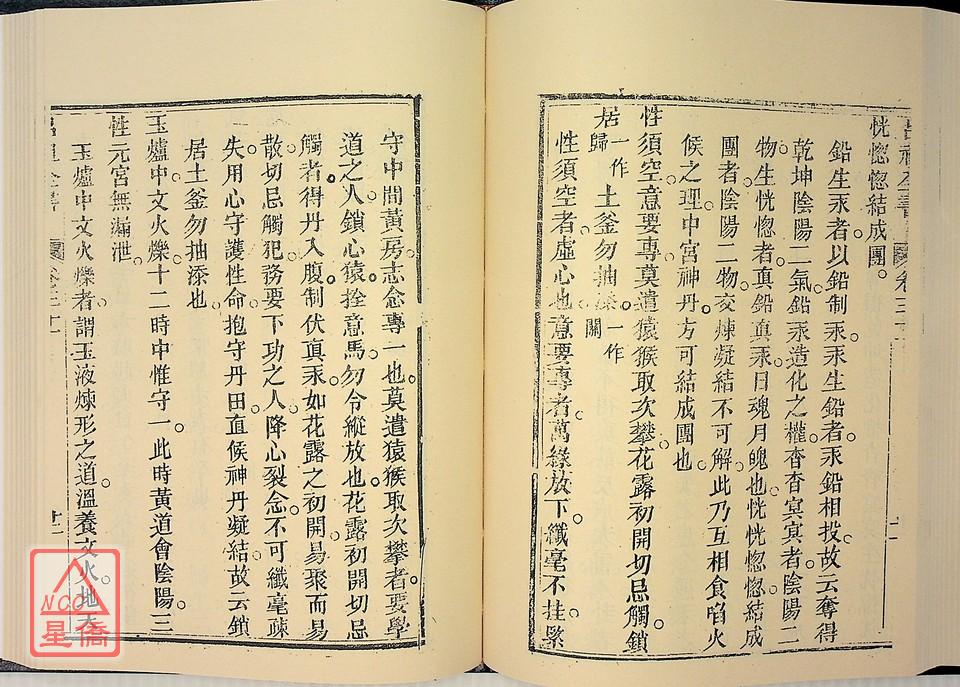 恍惚結成團。
鉛生汞者。以鉛制汞。汞生鉛者。汞鉛相投。故云奪得
乾坤陰陽二氣。鉛汞造化之權。杳杳冥冥者。陰陽二
物。生恍惚者。眞鉛眞汞。日魂月魄也。恍恍惚惚。結成
團者。陰陽二物。交煉凝結不可解。此乃互相食啗火
候之理。中宮神丹。方可結成團也。
性須空。意要專。莫遣猿猴取次攀。花露初開切忌觸。鎖
居一作歸土釜勿抽添。一作關
性須空者。虛心也。意要專者。萬緣放下。纖毫不挂。緊
守中間黃房。志念專一也。莫遣猿猴取次攀者。要學
道之人。鎖心猿。拴意馬。勿令縱放也。花露初開切忌
觸者。得丹入腹。制伏眞汞。如花露之初開。易聚而易
散。切忌觸犯。務要下功之人。降心裂念。不可纖毫疎
失。用心守護性命。抱守丹田。直候神丹凝結。故云鎖
居土釜勿抽添也。
玉爐中文火爍。十二時中惟守一。此時黃道會陰陽。三
性元宮無漏泄。
玉爐中文火爍者。謂玉液煉形之道。溫養文火。地天
卷三
十一
十二
NCC
星僑